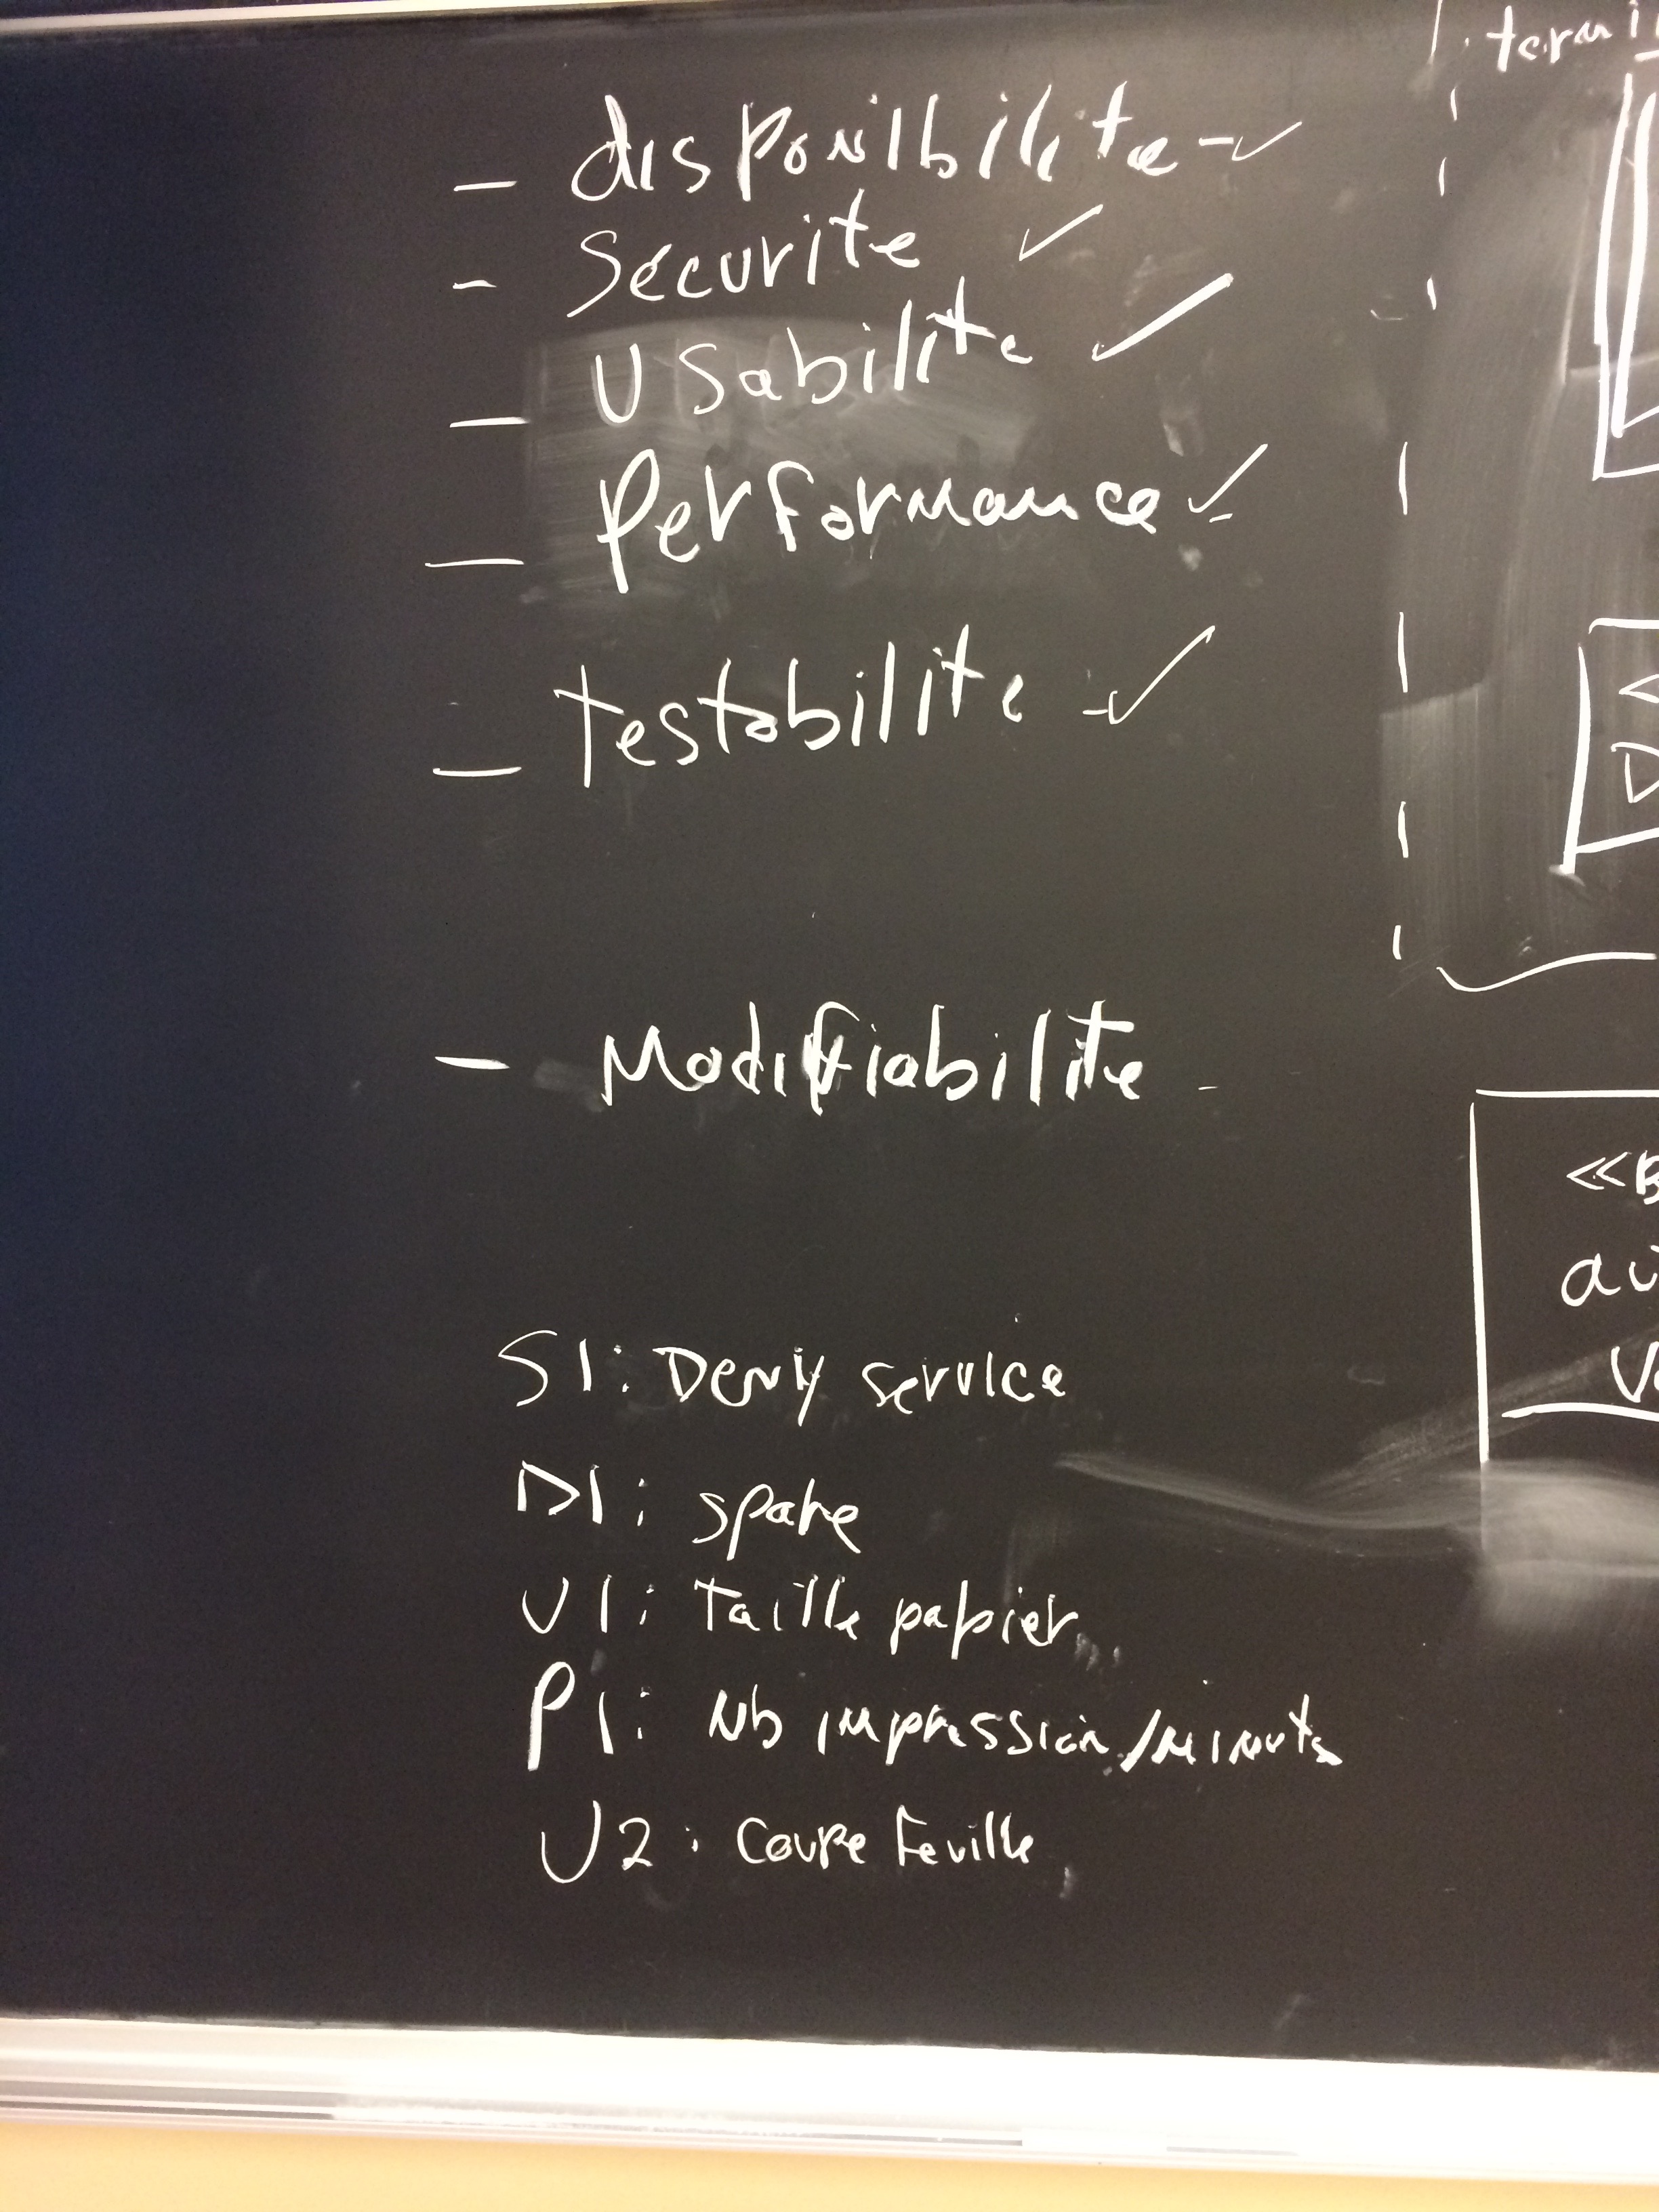 - disponilbilite - ✓
- Sécurite ✓
- Usabilite ✓
- Performance ✓
- testabilite - ✓
- Modifiabilite -
S1: Deny service
D1: spare
U1: Taille papier
P1: Nb impression/minute
U2: Coupe Feuille
termi
D
<<B
au